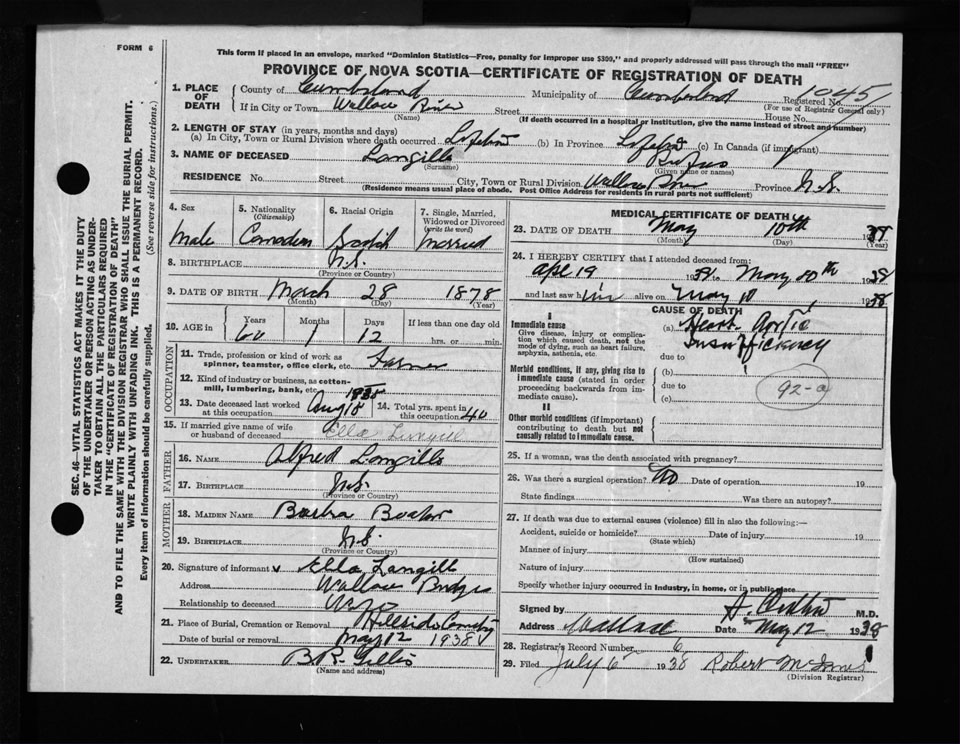 FORM 6
This form if placed in an envelope, marked "Dominion Statistics—Free, penalty for improper use $300," and properly addressed will pass through the mail "FREE"
PROVINCE OF NOVA SCOTIA—CERTIFICATE OF REGISTRATION OF DEATH
SEC. 46—VITAL STATISTICS ACT MAKES IT THE DUTY
OF THE UNDERTAKER OR PERSON ACTING AS UNDER-
TAKER TO OBTAIN ALL THE PARTICULARS REQUIRED
IN THE "CERTIFICATE OF REGISTRATION OF DEATH"
AND TO FILE THE SAME WITH THE DIVISION REGISTRAR WHO SHALL ISSUE THE BURIAL PERMIT.
WRITE PLAINLY WITH UNFADING INK. THIS IS A PERMANENT RECORD.
Every item of information should be carefully supplied. (See reverse side for instructions.)
1. PLACE OF DEATH County of Cumberland Municipality of Cumberland Registered No. 1045
(For use of Registrar General only)
If in City or Town Wallace River Street House No.
(Name) (If death occurred in a hospital or institution, give the name instead of street and number)
2. LENGTH OF STAY (in years, months and days)
(a) In City, Town or Rural Division where death occurred Lifetime (b) In Province Lifetime (c) In Canada (if immigrant)
3. NAME OF DECEASED Langille Rufus
(Surname) (Given name or names)
RESIDENCE No. Street City, Town or Rural Division Wallace Province N.S.
(Residence means usual place of abode. Post Office Address for residents in rural parts not sufficient)
4. Sex Male
5. Nationality (Citizenship) Canadian
6. Racial Origin Scotish
7. Single, Married, Widowed or Divorced (write the word) Married
8. BIRTHPLACE N.S.
(Province or Country)
9. DATE OF BIRTH March 28 1878
(Month) (Day) (Year)
10. AGE in Years 60 Months 1 Days 12 If less than one day old hrs. or min.
OCCUPATION
11. Trade, profession or kind of work as spinner, teamster, office clerk, etc. Farmer
12. Kind of industry or business, as cotton-mill, lumbering, bank, etc.
13. Date deceased last worked at this occupation Aug 18
14. Total yrs. spent in this occupation 40
15. If married give name of wife or husband of deceased Ella Langille
FATHER
16. NAME Alfred Langille
17. BIRTHPLACE N.S.
(Province or Country)
MOTHER
18. MAIDEN NAME
19. BIRTHPLACE N.S.
(Province or Country)
20. Signature of informant Ella Langille
Address Wallace Bridge
Relationship to deceased Wife
21. Place of Burial, Cremation or Removal Hillside Cemetery
Date of burial or removal May 12 1938
22. UNDERTAKER B.R. Gillis
(Name and address)
MEDICAL CERTIFICATE OF DEATH
23. DATE OF DEATH May 10th 1938
(Month) (Day) (Year)
24. I HEREBY CERTIFY that I attended deceased from:
Apl 19 1938 to May 10th 1938
and last saw him alive on May 10 1938
CAUSE OF DEATH
I
Immediate cause
Give disease, injury or complication which caused death, not the mode of dying, such as heart failure, asphyxia, asthenia, etc.
(a) Heart Aortic
Insufficiency
due to
Morbid conditions, if any, giving rise to immediate cause (stated in order proceeding backwards from immediate cause).
(b)
due to
(c)
92-a
II
Other morbid conditions (if important) contributing to death but not causally related to immediate cause.
25. If a woman, was the death associated with pregnancy?
26. Was there a surgical operation? No Date of operation 19
State findings Was there an autopsy?
27. If death was due to external causes (violence) fill in also the following:—
Accident, suicide or homicide? Date of injury 19
(State which)
Manner of injury
(How sustained)
Nature of injury
Specify whether injury occurred in Industry, in home, or in public place
Signed by M.D.
Address Wallace Date May 12 1938
28. Registrar's Record Number 6
29. Filed July 6 1938 Robert McInnes
(Division Registrar)